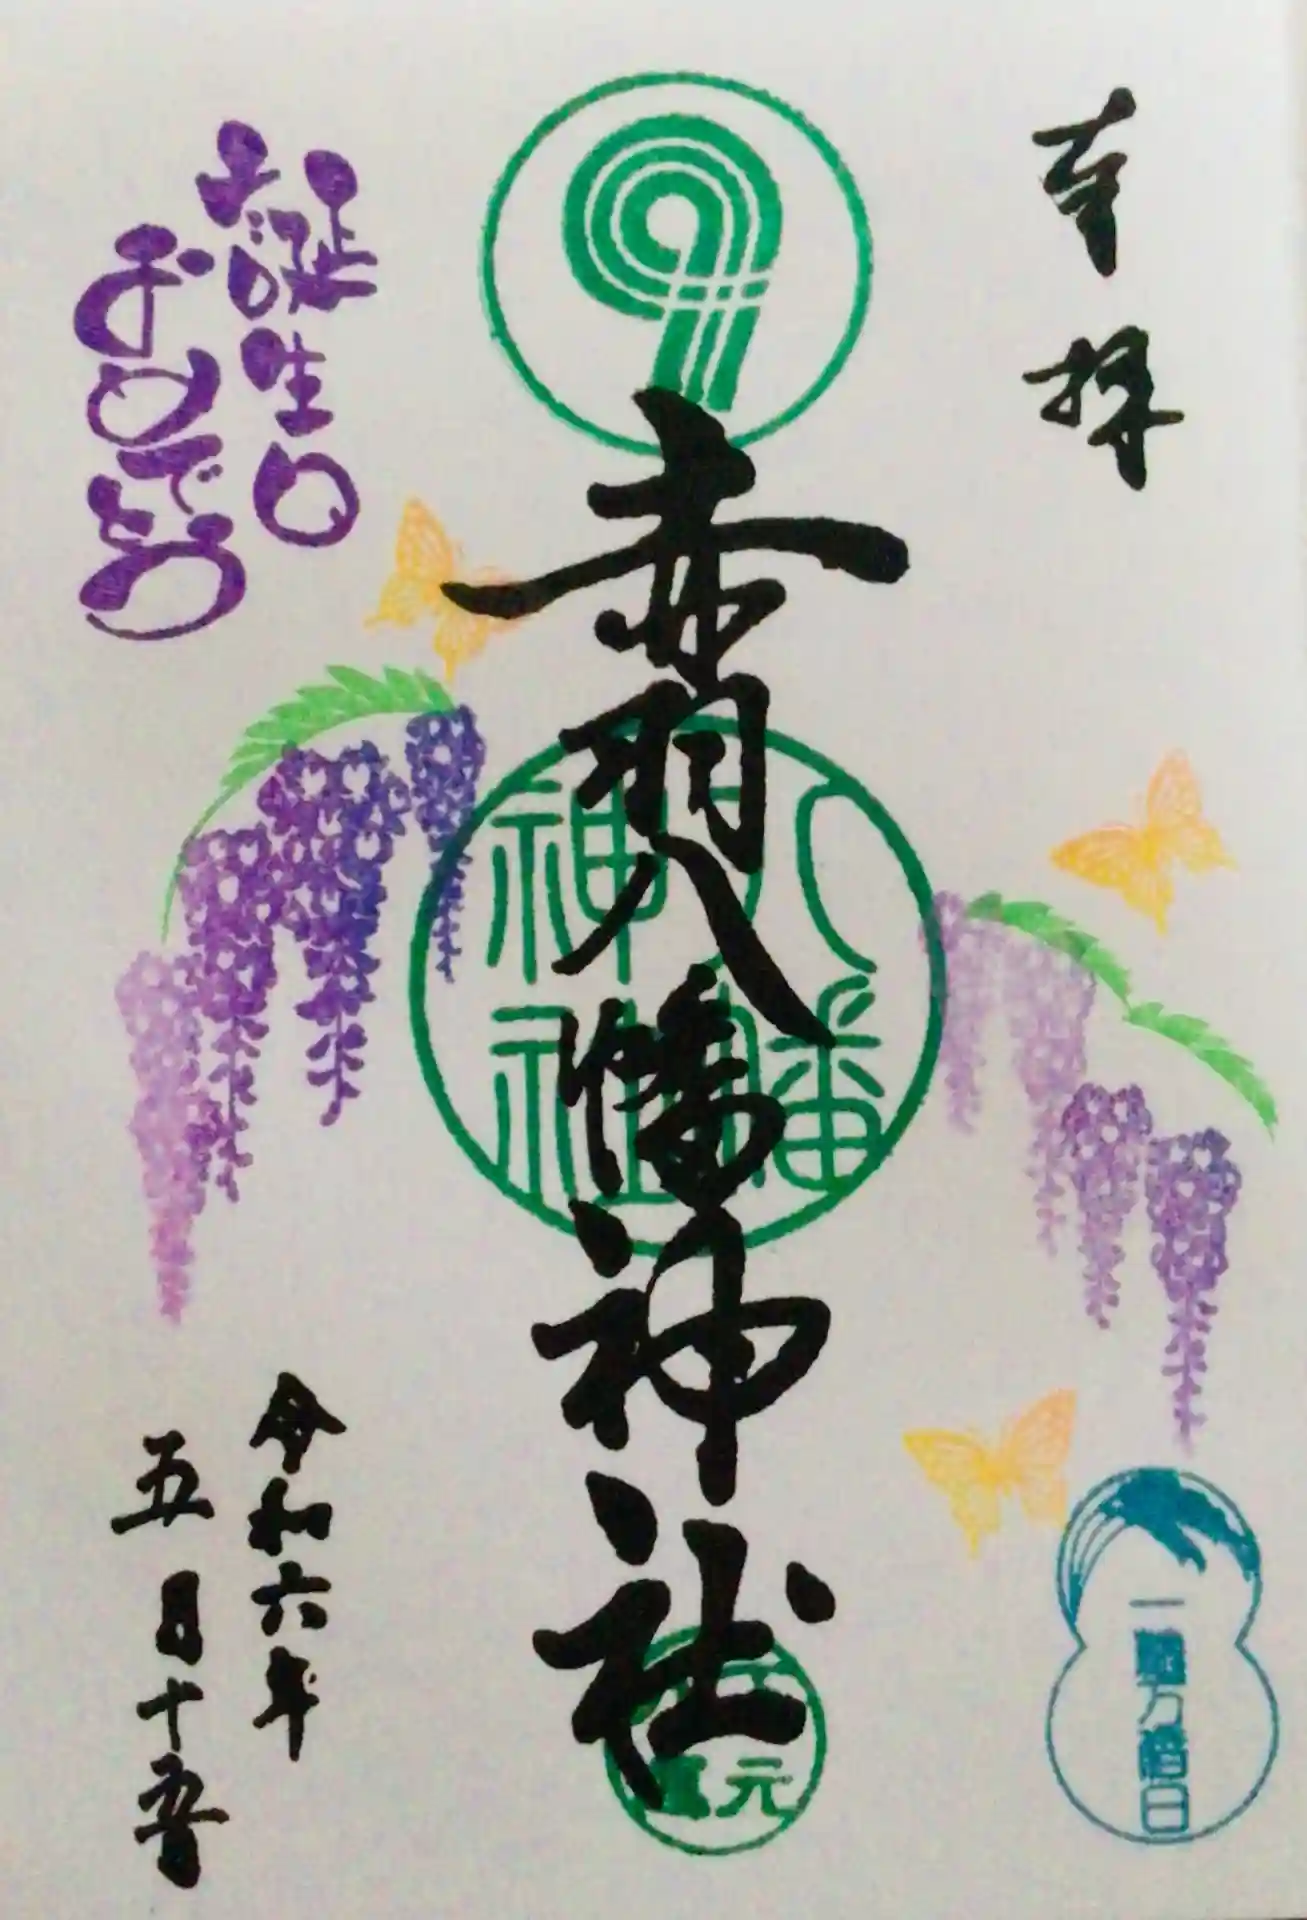 奉拝
赤羽八幡神社
八幡
神社
一粒万倍日
お誕生日
おめでとう
令和六年
五月十五日